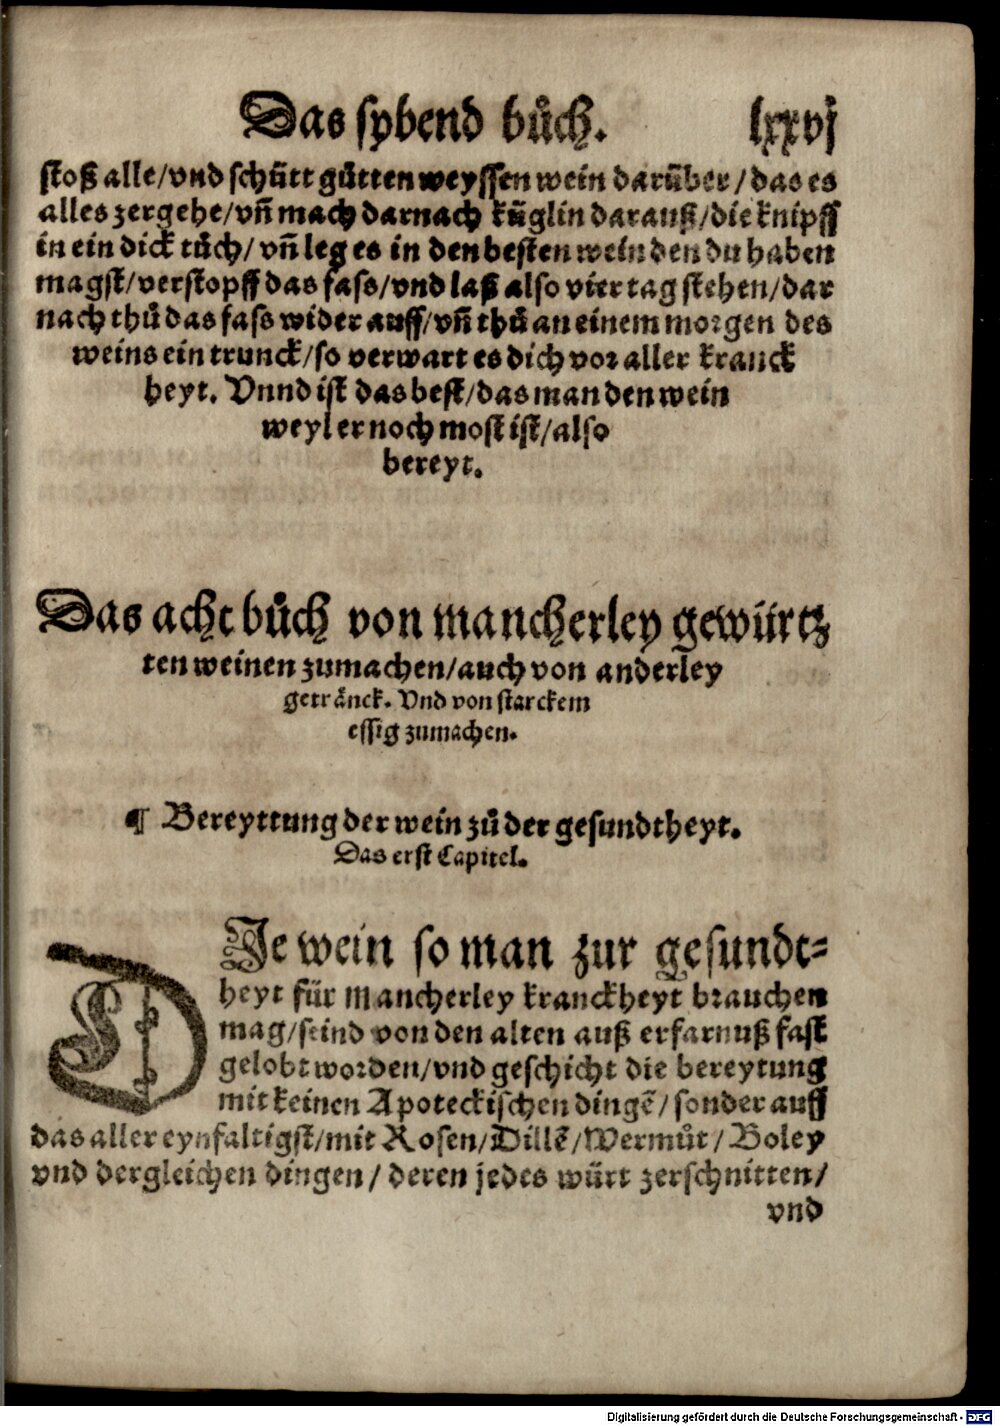 Das sybend bůch. lxxvj
stoß alle/vnd schütt gůtten weyssen wein darüber/das es
alles zergehe/vñ mach darnach küglin darauß/die knipff
in ein dick tůch/vñ leg es in den besten wein den du haben
magst/verstopff das fass/vnd laß also vier tag stehen/dar
nach thů das fass wider auff/vñ thů an einem morgen des
weins ein trunck/so verwart es dich vor aller kranck
heyt. Vnnd ist das best/das man den wein
weyl er noch most ist/also
bereyt.
Das acht bůch von mancherley gewürtz
ten weinen zumachen/auch von anderley
getränck. Vnd von starckem
essig zumachen.
¶ Bereyttung der wein zů der gesundtheyt.
Das erst Capitel.
DJe wein so man zur gesundt=
heyt für mancherley kranckheyt brauchen
mag/seind von den alten auß erfarnuß fast
gelobt worden/vnd geschicht die bereytung
mit keinen Apoteckischen dingẽ/sonder auff
das aller eynfaltigst/mit Rosen/Dillẽ/Wermůt/Boley
vnd dergleichen dingen/deren jedes würt zerschnitten/
vnd
Digitalisierung gefördert durch die Deutsche Forschungsgemeinschaft - DFG